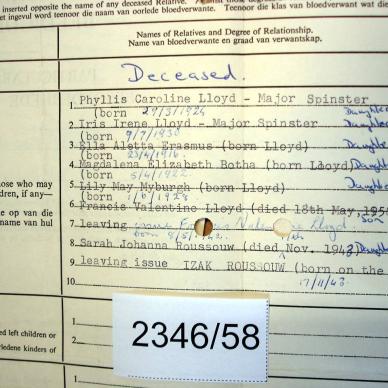 inserted opposite the name of any deceased Relative.
et ingevul word teenoor die naam van oorlede bloedverwante. Teenoor die klas van bloedverwant wat die
Names of Relatives and Degree of Relationship.
Name van bloedverwante en graad van verwantskap.
Deceased.
1. Phyllis Caroline Lloyd - Major Spinster
(born 29/3/1924 Daughter
2. Iris Irene Lloyd - Major Spinster
(born 9/7/1930 Daughter
3. Ella Aletta Erasmus (born Lloyd)
(born 23/4/1916. Daughter
4. Magdalena Elizabeth Botha (born Lloyd)
(born 5/4/1922. Daughter
5. Lily May Myburgh (born Lloyd)
(born 1/6/1928 Daughter
6. Francis Valentine Lloyd (died 18th May, 195
Son
7. leaving issue Lloyd
born
8. Sarah Johanna Roussouw (died Nov. 1943 Daught
9. leaving issue IZAK ROUSSOUW (born on the
10. 17/11/43.
hose who may
dren, if any—
e op van die
naam van hul
ed left children or
rledene kinders of
1.
2.
1
2346/58